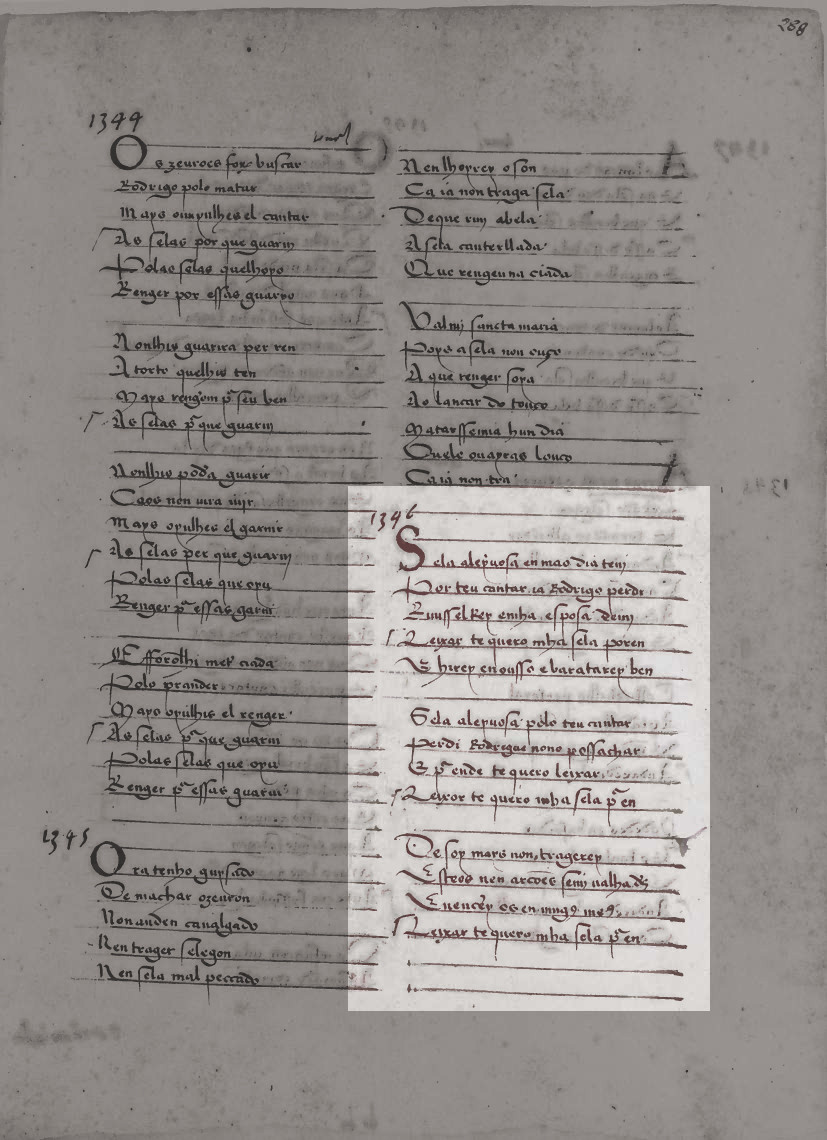 288
1344
Os zeuroes foy buscar
Rodrigo polo matar
Mays ouuyulhes el cantar
As selas por que guarin
Polas selas quelhoyo
Renger por essas guaryo
Nonlhis guarira per ren
A torto quelhis ten
Mays rengom p̃ seu ben
As selas p̃ que guarin
Nonlhis podia guarir
Caos non uira
Mays oyulhes el
As selas per que guarin
Polas selas que oyu
Renger p̃ essas
ciada
Polo prander
Mays oyulhis el renger
As selas p̃ que guarin
Polas selas que oyu
Renger p̃ essas guariu
1345
Ora tenho guysado
De machar ozeuron
Non anden caualgado
Nen trager selegon
Nen sela mal peccado
Nen lhoyrey o son
Ca ia non traga sela
De que ruy abela
A sela canterllada
Que rengeu na ciada
Valmi sancta maria
Poys a sela non ouço
A que renger soya
Ao lancar do touço
Matarssemia hun dia
Ou ele ou ayras louço
Ca ia non tra
1346
Sela aleyuosa en mao dia teui
Por teu cantar ia Rodrigo perdi
Leixar te quero mha sela poren
E hirey en ousso e baratarey ben
Sela aleyuosa polo teu cantar
Perdi Rodrigue nono possachar
E p̃ ende te quero leixar
Leixar te quero mha sela p̃ en
De soy mays non tragerey
Esteos nen arcoes semi ualha d̃s
Leixar te quero mha sela p̃ en